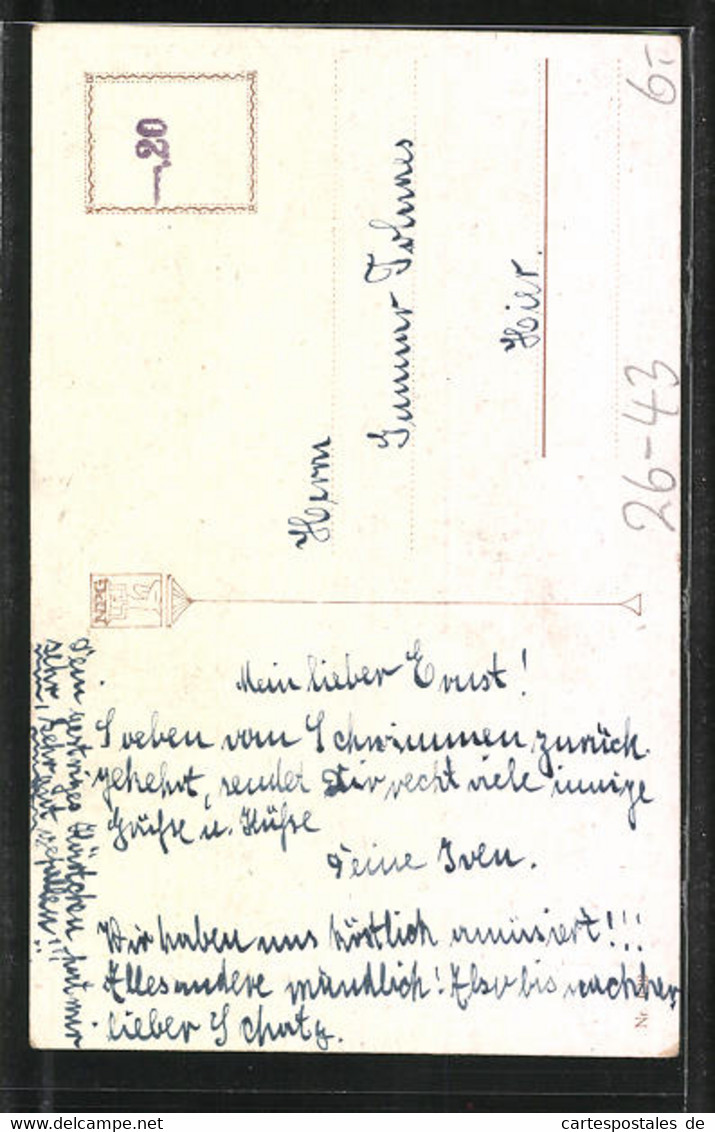 -,20
6.-
Herrn
Gunnar Johnnes
Hier.
26-43
NPG
Mein lieber Ernst!
Soeben vom Schwimmen zurück-
gekehrt, sendet Dir recht viele innige
Grüße u. Küße
Deine Iven.
Wir haben uns köstlich amüsiert!!!
Alles andere mündlich! Also bis nachher
lieber Schatz.
Dein gestriges Kärtchen hat mir
sehr, sehr gut gefallen!!!
Nr.
cartespostales.de